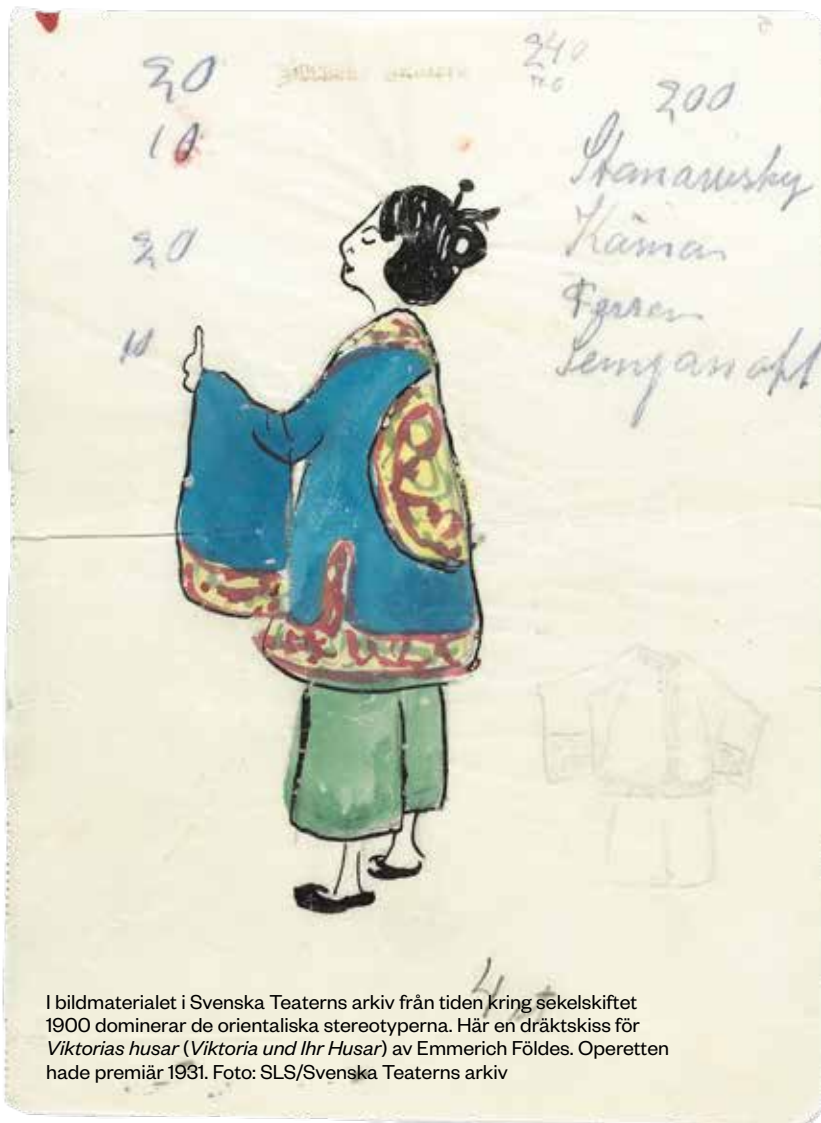 20
10
20
10
240
200
Kämon
Fersen
4 st
I bildmaterialet i Svenska Teaterns arkiv från tiden kring sekelskiftet
1900 dominerar de orientaliska stereotyperna. Här en dräktskiss för
Viktorias husar (Viktoria und Ihr Husar) av Emmerich Földes. Operetten
hade premiär 1931. Foto: SLS/Svenska Teaterns arkiv